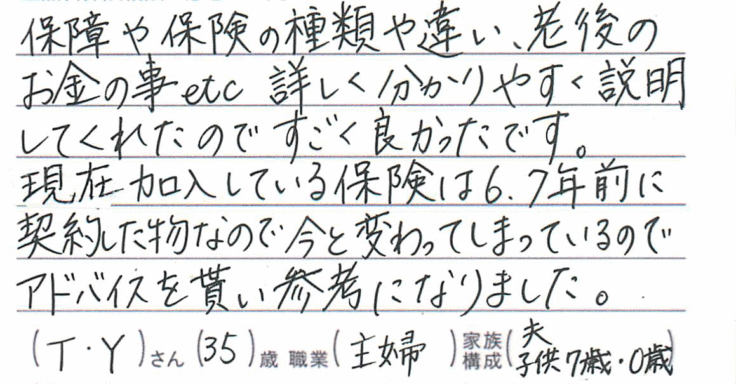 保障や保険の種類や違い、老後の
お金の事etc 詳しく分かりやすく説明
してくれたのですごく良かったです。
現在加入している保険は6.7年前に
契約した物なので今と変わってしまっているので
アドバイスを貰い参考になりました。
(T・Y)さん(35)歳 職業(主婦)家族構成(夫 子供7歳・0歳)